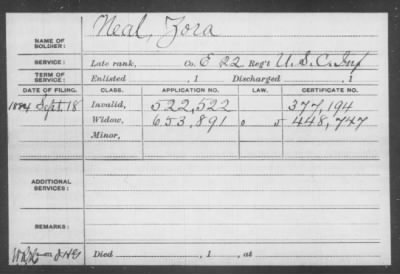 NAME OF SOLDIER: Neal, Zora
SERVICE: Late rank, Co. E 22 Reg't U. S. C. Inf
TERM OF SERVICE: Enlisted , 1 Discharged , 1
DATE OF FILING. CLASS. APPLICATION NO. LAW. CERTIFICATE NO.
1884 Sept. 18 Invalid, 522,522 377,194
Widow, 653,891 448,747
Minor,
ADDITIONAL SERVICES:
REMARKS:
Died , 1 , at